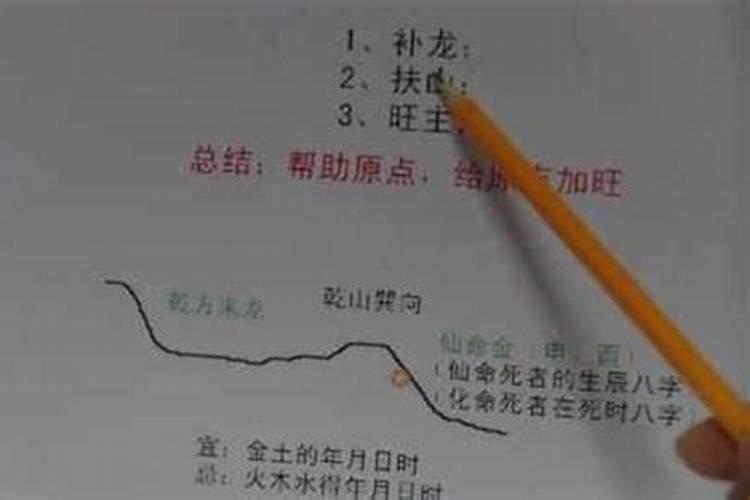 1、补龙；
2、扶山；
3、旺主；
总结：帮助原点，给原点加旺
乾方来龙
乾山巽向
仙命金（申、酉）
（仙命死者的生辰八字
（化命死者在死时八字）
宜：金土的年月日时
忌：火木水得年月日时